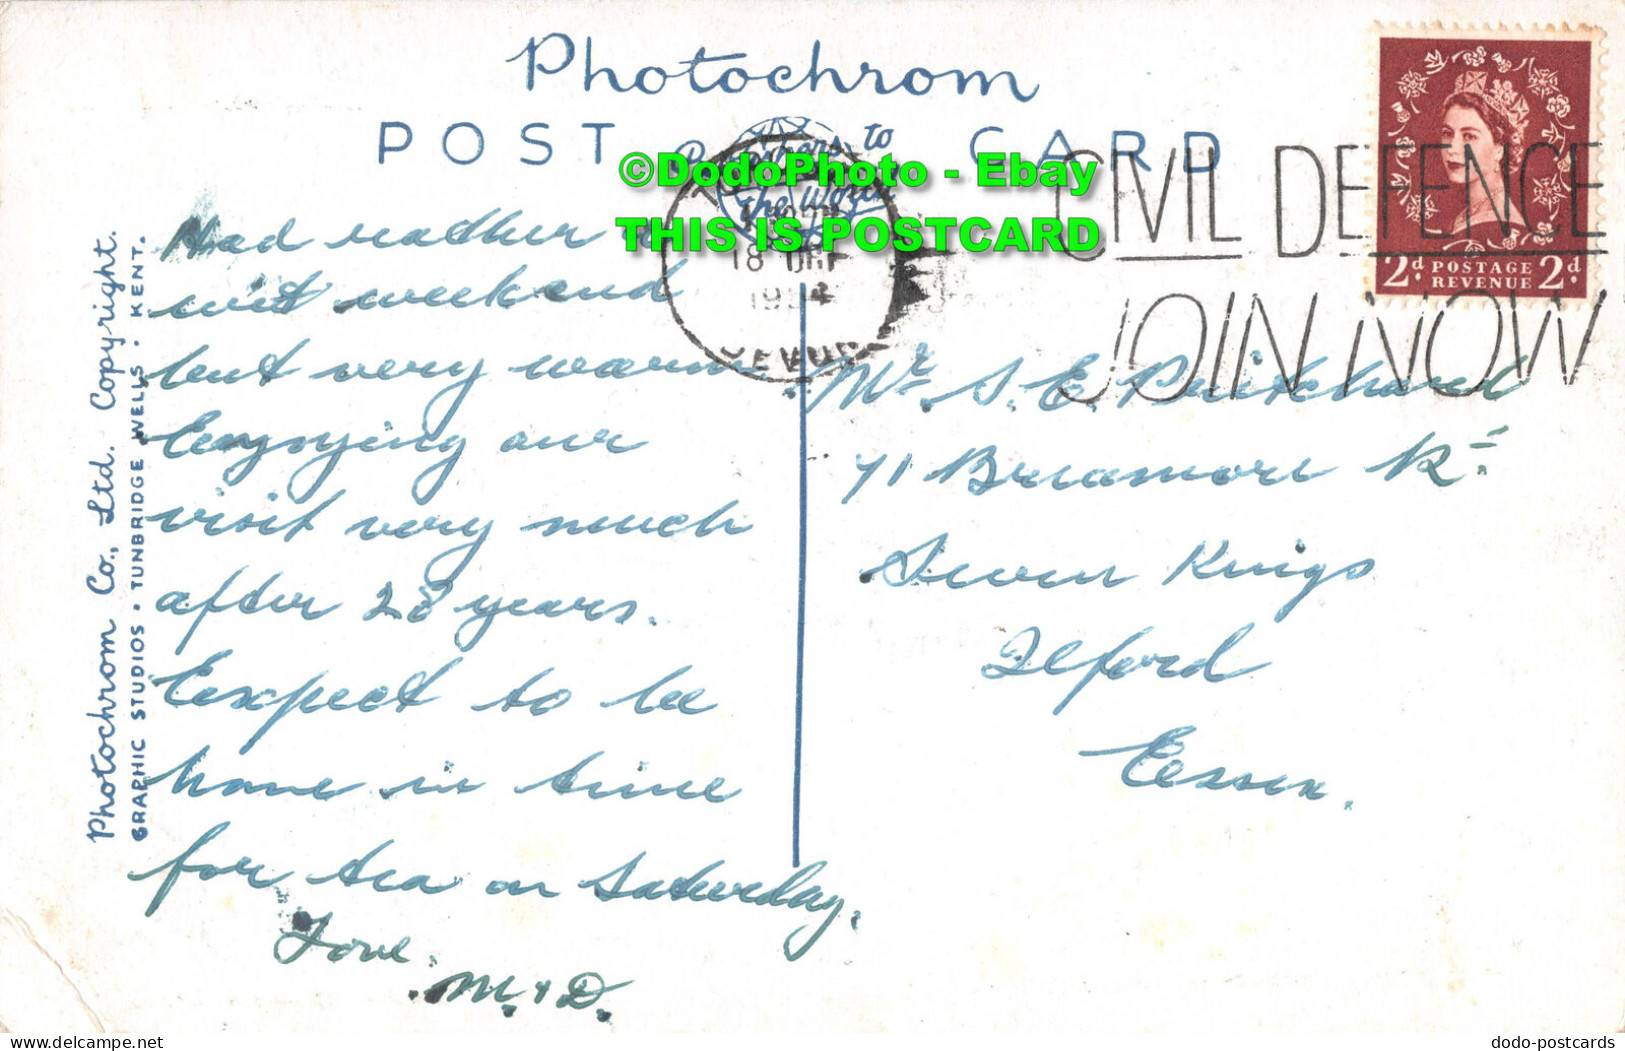 Photochrom
POST CARD
Publishers to
The World
©DodoPhoto - Ebay
THIS IS POSTCARD
18 1954
DEVON
CIVIL DEFENCE
JOIN NOW
2d. POSTAGE REVENUE 2d.
Photochrom Co., Ltd. Copyright.
GRAPHIC STUDIOS · TUNBRIDGE WELLS · KENT.
Had rather a
wet weekend
but very warm.
Enjoying our
visit very much
after 28 years.
Expect to be
home in time
for tea on Saturday.
Love.
M. & D.
Mr. S. E. Pritchard
71 Breamore Rd
Seven Kings
Ilford
Essex.
dodo-postcards
www.delcampe.net